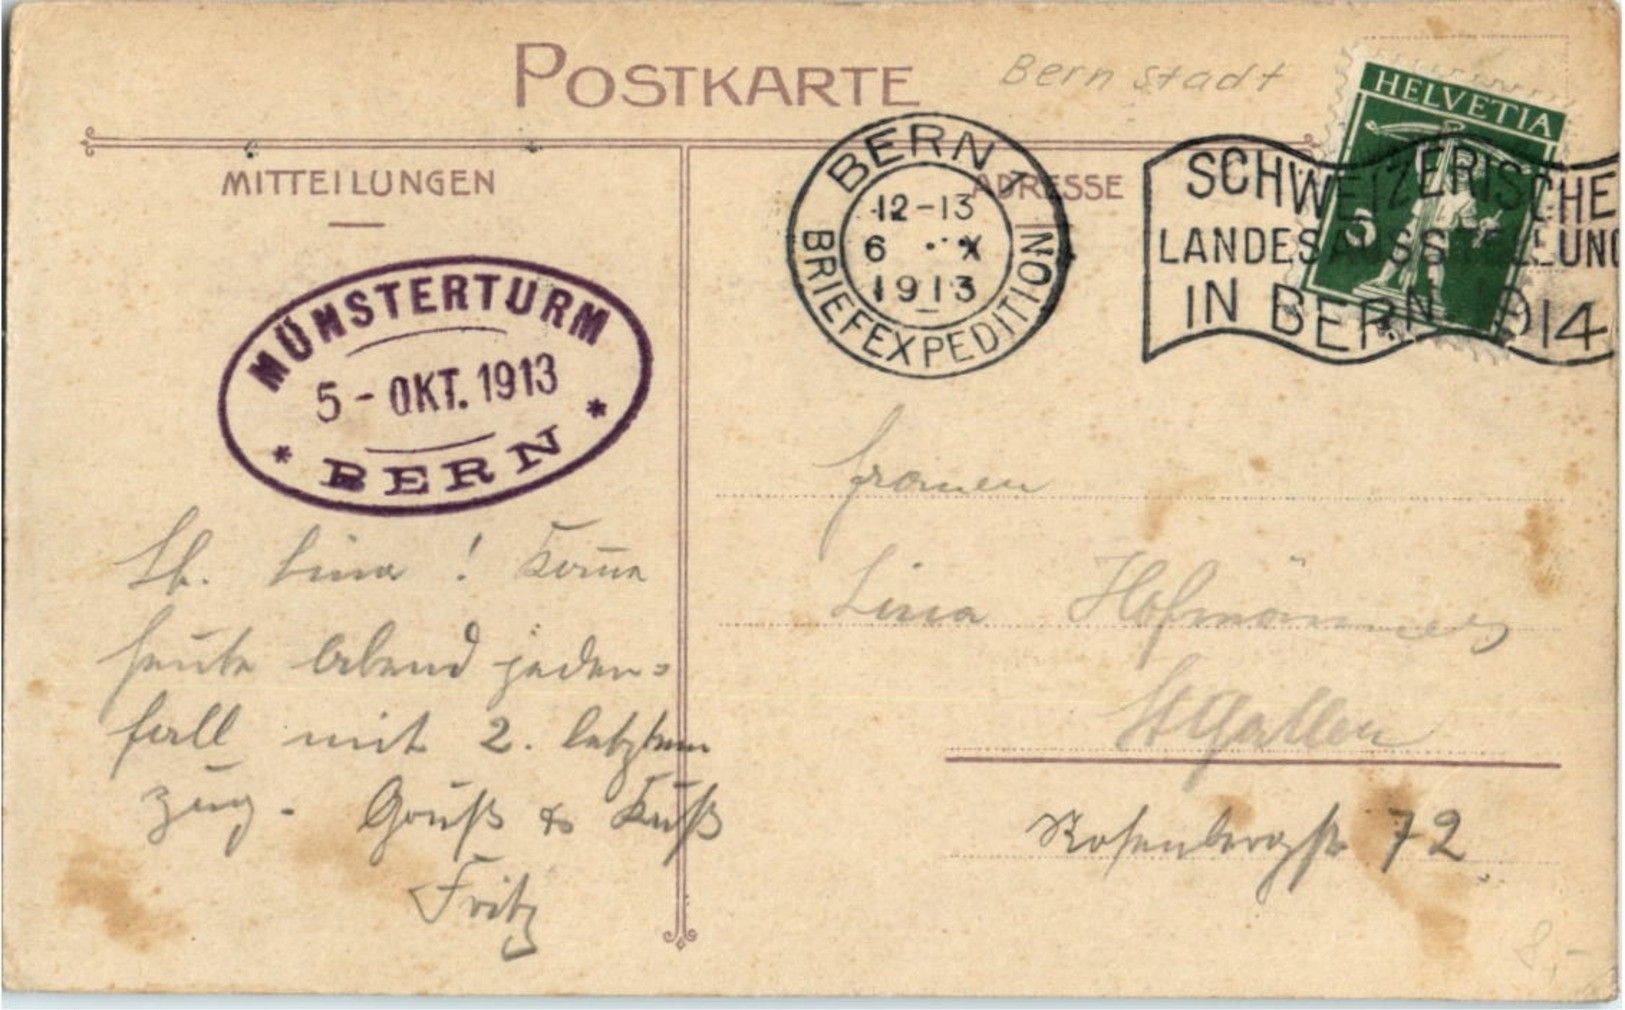 POSTKARTE
Bern Stadt
HELVETIA
5
MITTEILUNGEN
ADRESSE
BERN 1
12-13
6 X
1913
BRIEFEXPEDITION
SCHWEIZERISCHE
LANDESAUSSTELLUNG
IN BERN 1914
MÜNSTERTURM
5 - OKT. 1913
* BERN *
Lb. Lina! Komme
heute Abend jeden=
fall mit 2. letztem
Zug. Gruß & Kuß
Fritz
Lina
St Gallen
Rosenbergstr 72
8,-